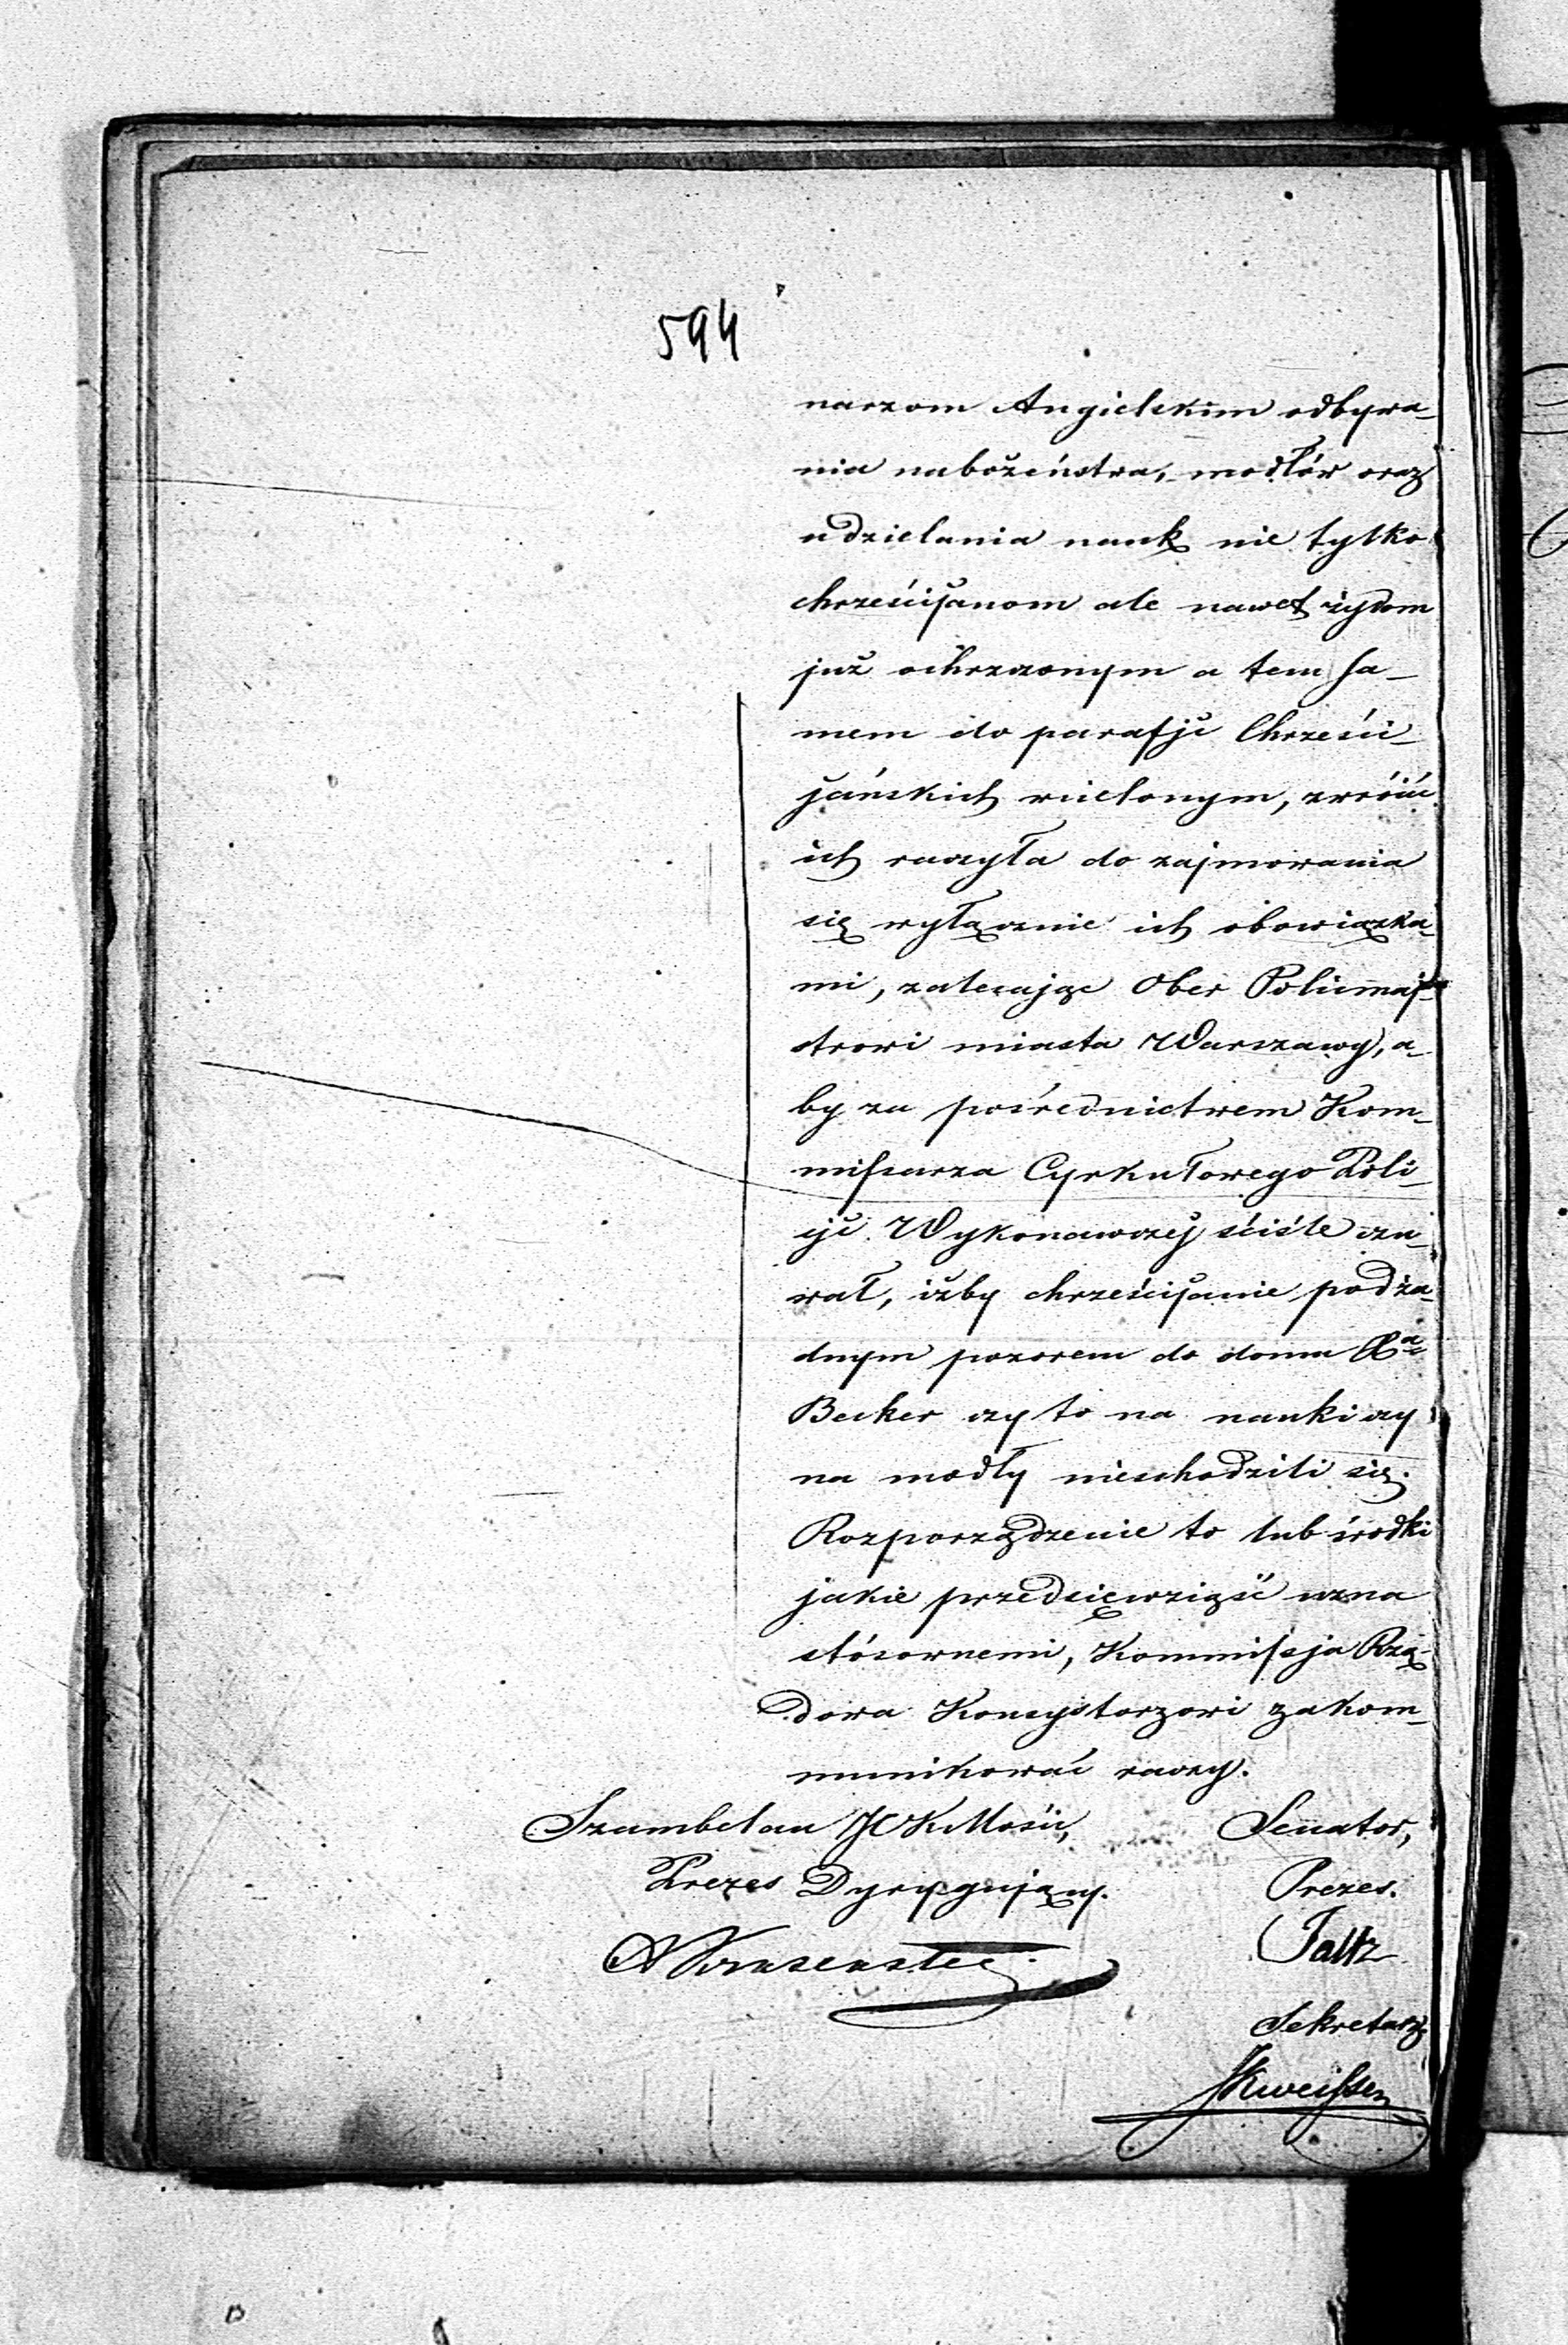 594
narzom Angielskim odbywa-
nia nabożeństwa, modłów oraz
udzielania nauk nie tylko
chrześcijanom ale nawet żydom
już ochrzczonym a tem sa-
mem do parafji Chrześci-
jańskich wcielonym, zwrócić
ich raczyła do zajmowania
się wyłącznie ich obowiązka-
mi, zalecając Ober Policmaj-
strowi miasta Warszawy, a-
by za pośrednictwem Kom-
missarza Cyrkułowego Poli-
cji Wykonawczej ściśle czu-
wał, iżby chrześcijanie pod ża-
dnym pozorem do domu Xa
Becker czy to na nauki czy
na modły nieschodzili się.
Rozporządzenie to lub środki
jakie przedsięwziąść uzna
stósownemi, Kommissja Rzą-
dowa Konsystorzowi zakom-
munikować raczy.
Szambelan JCKMości, Senator,
Prezes Dyrygujący. Prezes.
Faltz
Sekretarz